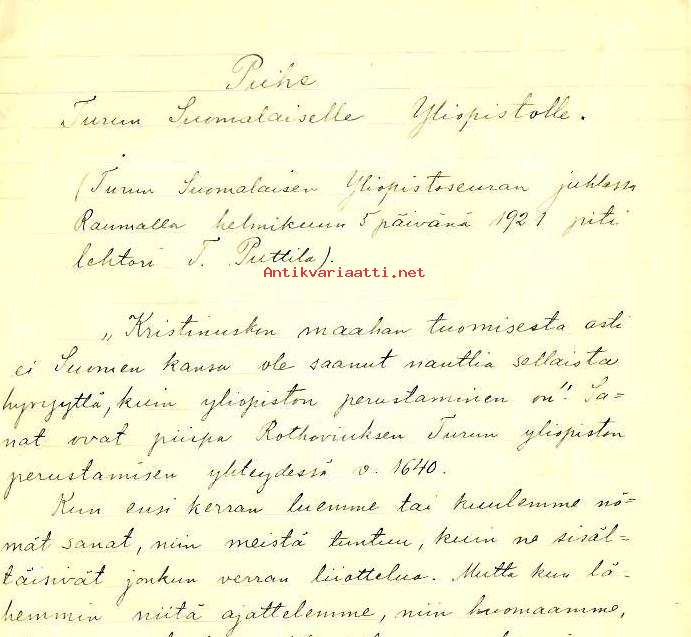 Puhe
Turun Suomalaiselle Yliopistolle.
(Turun Suomalaisen Yliopistoseuran juhlassa
Raumalla helmikuun 5 päivänä 1921 piti
lehtori T. Puttila).
Antikvariaatti.net
„Kristinuskon maahan tuomisesta asti
ei Suomen kansa ole saanut nauttia sellaista
hyvyyttä, kuin yliopiston perustaminen on". Sa=
nat ovat piispa Rothoviuksen Turun yliopiston
perustamisen yhteydessä v. 1640.
Kun ensi kerran luemme tai kuulemme nä=
mät sanat, niin meistä tuntuu, kuin ne sisäl=
täisivät jonkun verran liiottelua. Mutta kun lä=
hemmin niitä ajattelemme, niin huomaamme,